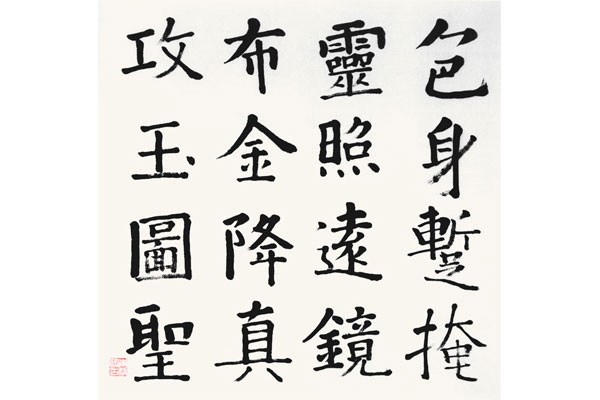 色身蹔掩
靈照遠鏡
布金降真
攻玉圖聖